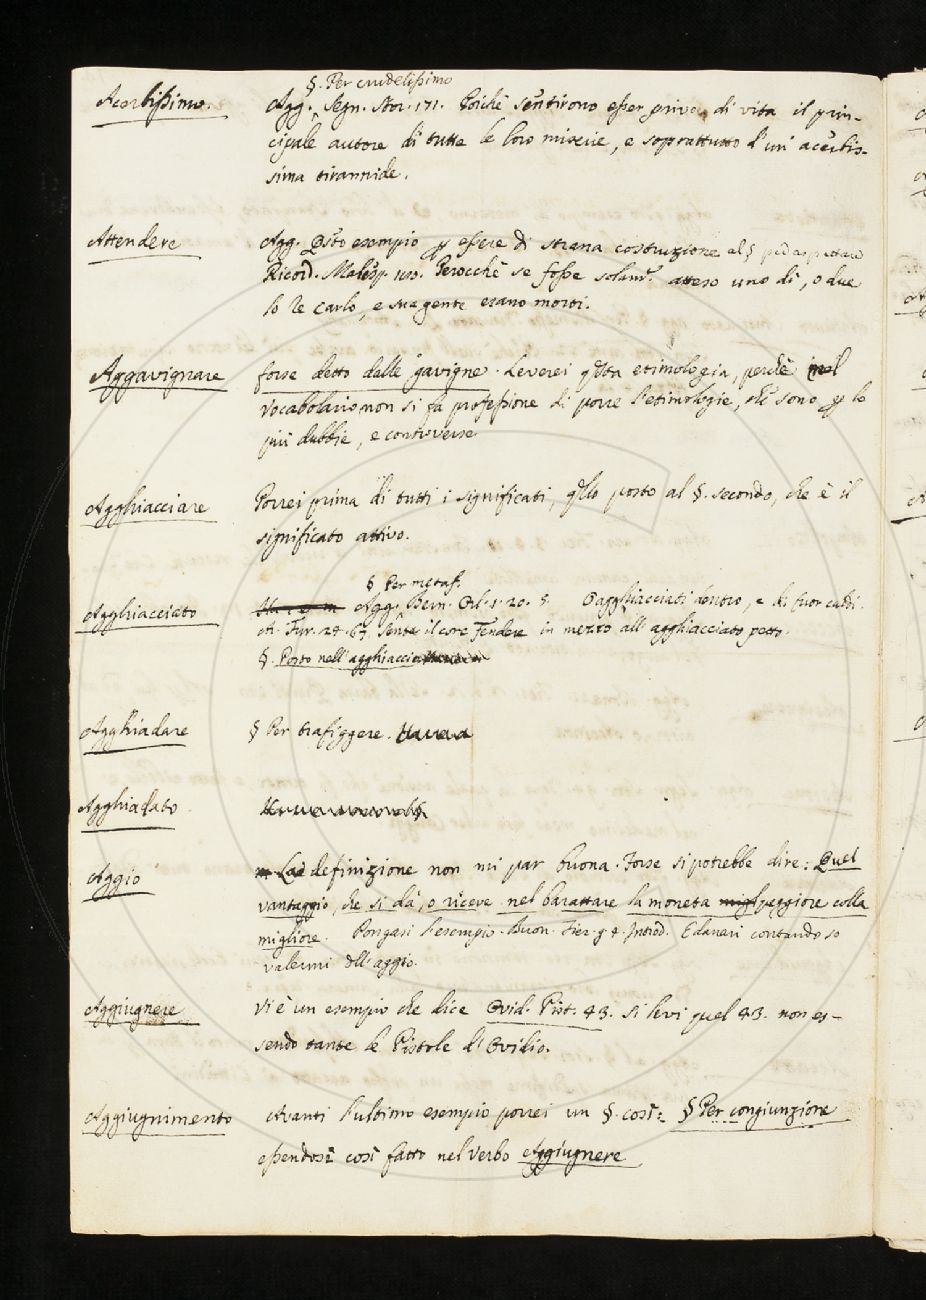 §. Per crudelissimo
Acerbissimo. Agg. Segn. Stor. 171. Poichè sentirono esser privo di vita il prin-
cipale autore di tutte le loro miserie, e soprattutto d'un' acerbis-
sima tirannide.
Attendere Agg. Qsto esempio p essere di strana costruzione al § p aspettare
Ricord. Malesp. Perocchè se fosse solamte atteso uno dì, o due
lo Re Carlo, e sua gente erano morti.
Aggavignare forse detto dalle gavigne. Leverei qsta etimologia, perchè nel
vocabolario non si fa professione di porre l'etimologie, che sono p lo
più dubbie, e controverse
Agghiacciare Porrei prima di tutti i significati, qllo posto al §. secondo, che è il
significato attivo.
§ Per metaf.
Agghiacciato Agg. Bern. Orl. 1. 20. 5. O agghiacciati dentro, e di fuor caldi.
Ar. Fur. 24. 67 Sente il core fendere in mezzo all'agghiacciato petto.
§. Posto nell'agghiaccio
Agghiadare § Per trafiggere.
Agghiadato
Aggio La definizione non mi par buona. Forse si potrebbe dire: Quel
vantaggio, che si dà, o riceve nel barattare la moneta peggiore colla
migliore. Pongasi l'esempio. Buon. Fier. g. 4. Introd. E danari contando so
valermi dell'aggio.
Aggiugnere Vi è un esempio che dice Ovid. Pist. 43. si levi quel 43. non es-
sendo tante le Pistole d'Ovidio.
Aggiugnimento Avanti l'ultimo esempio porrei un §. così: § Per congiunzione
essendosi così fatto nel verbo Aggiugnere